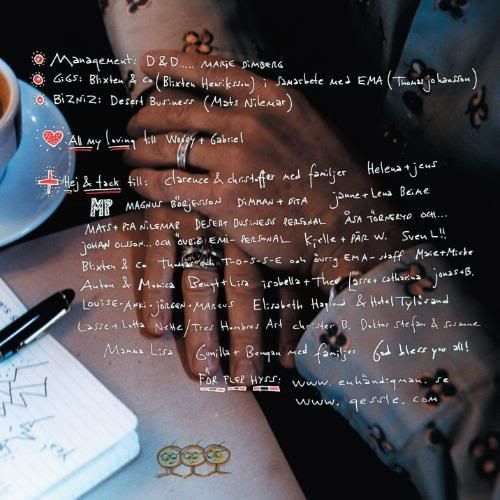 Management: D&D..... MARIE DIMBERG
GIGS: Blixten & Co (Blixten Henriksson) i samarbete med EMA (Thomas Johansson)
BIZNIZ: Desert Business (Mats Nilemar)
All my loving till Woody + Gabriel
Hej & tack till: Clarence & christoffer med familjer Helena + jens
MP MAGNUS BÖRJESSON DIMMAN + DITA janne + Lena Beime
MATS + PIA NILEMAR DESERT BUSINESS PERSONAL ÅSA TÖRNERYD OCH...
JOHAN OLSSON... OCH ÖVRIG EMI-PERSONAL Kjelle + PÄR W. Sven L!!
Blixten & Co Thomas och T-O-S-S-E och övrig EMA-staff Marie + Micke
Anton & Monica Bengt + Lisa isabella + Theo Lasse + catharina jonas + B.
LOUISE-ANKI-JÖRGEN-MARCUS Elisabeth Haglund & Hotel Tylösand
Lasse + Lotta Nette/Tres Hombres Art christer B. Doktor Stefan & Susanne
Mamma Lisa Gunilla + Bengan med familjer God bless you all!
FÖR FLER HYSS: www.enhändigman.se
www.gessle.com